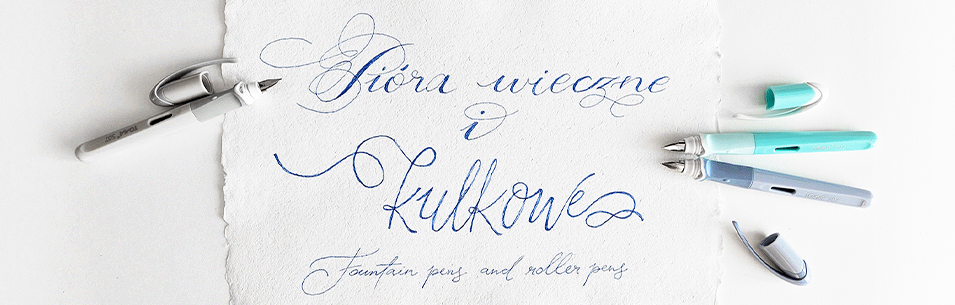 Pióra wieczne
i
kulkowe
Fountain pens and roller pens